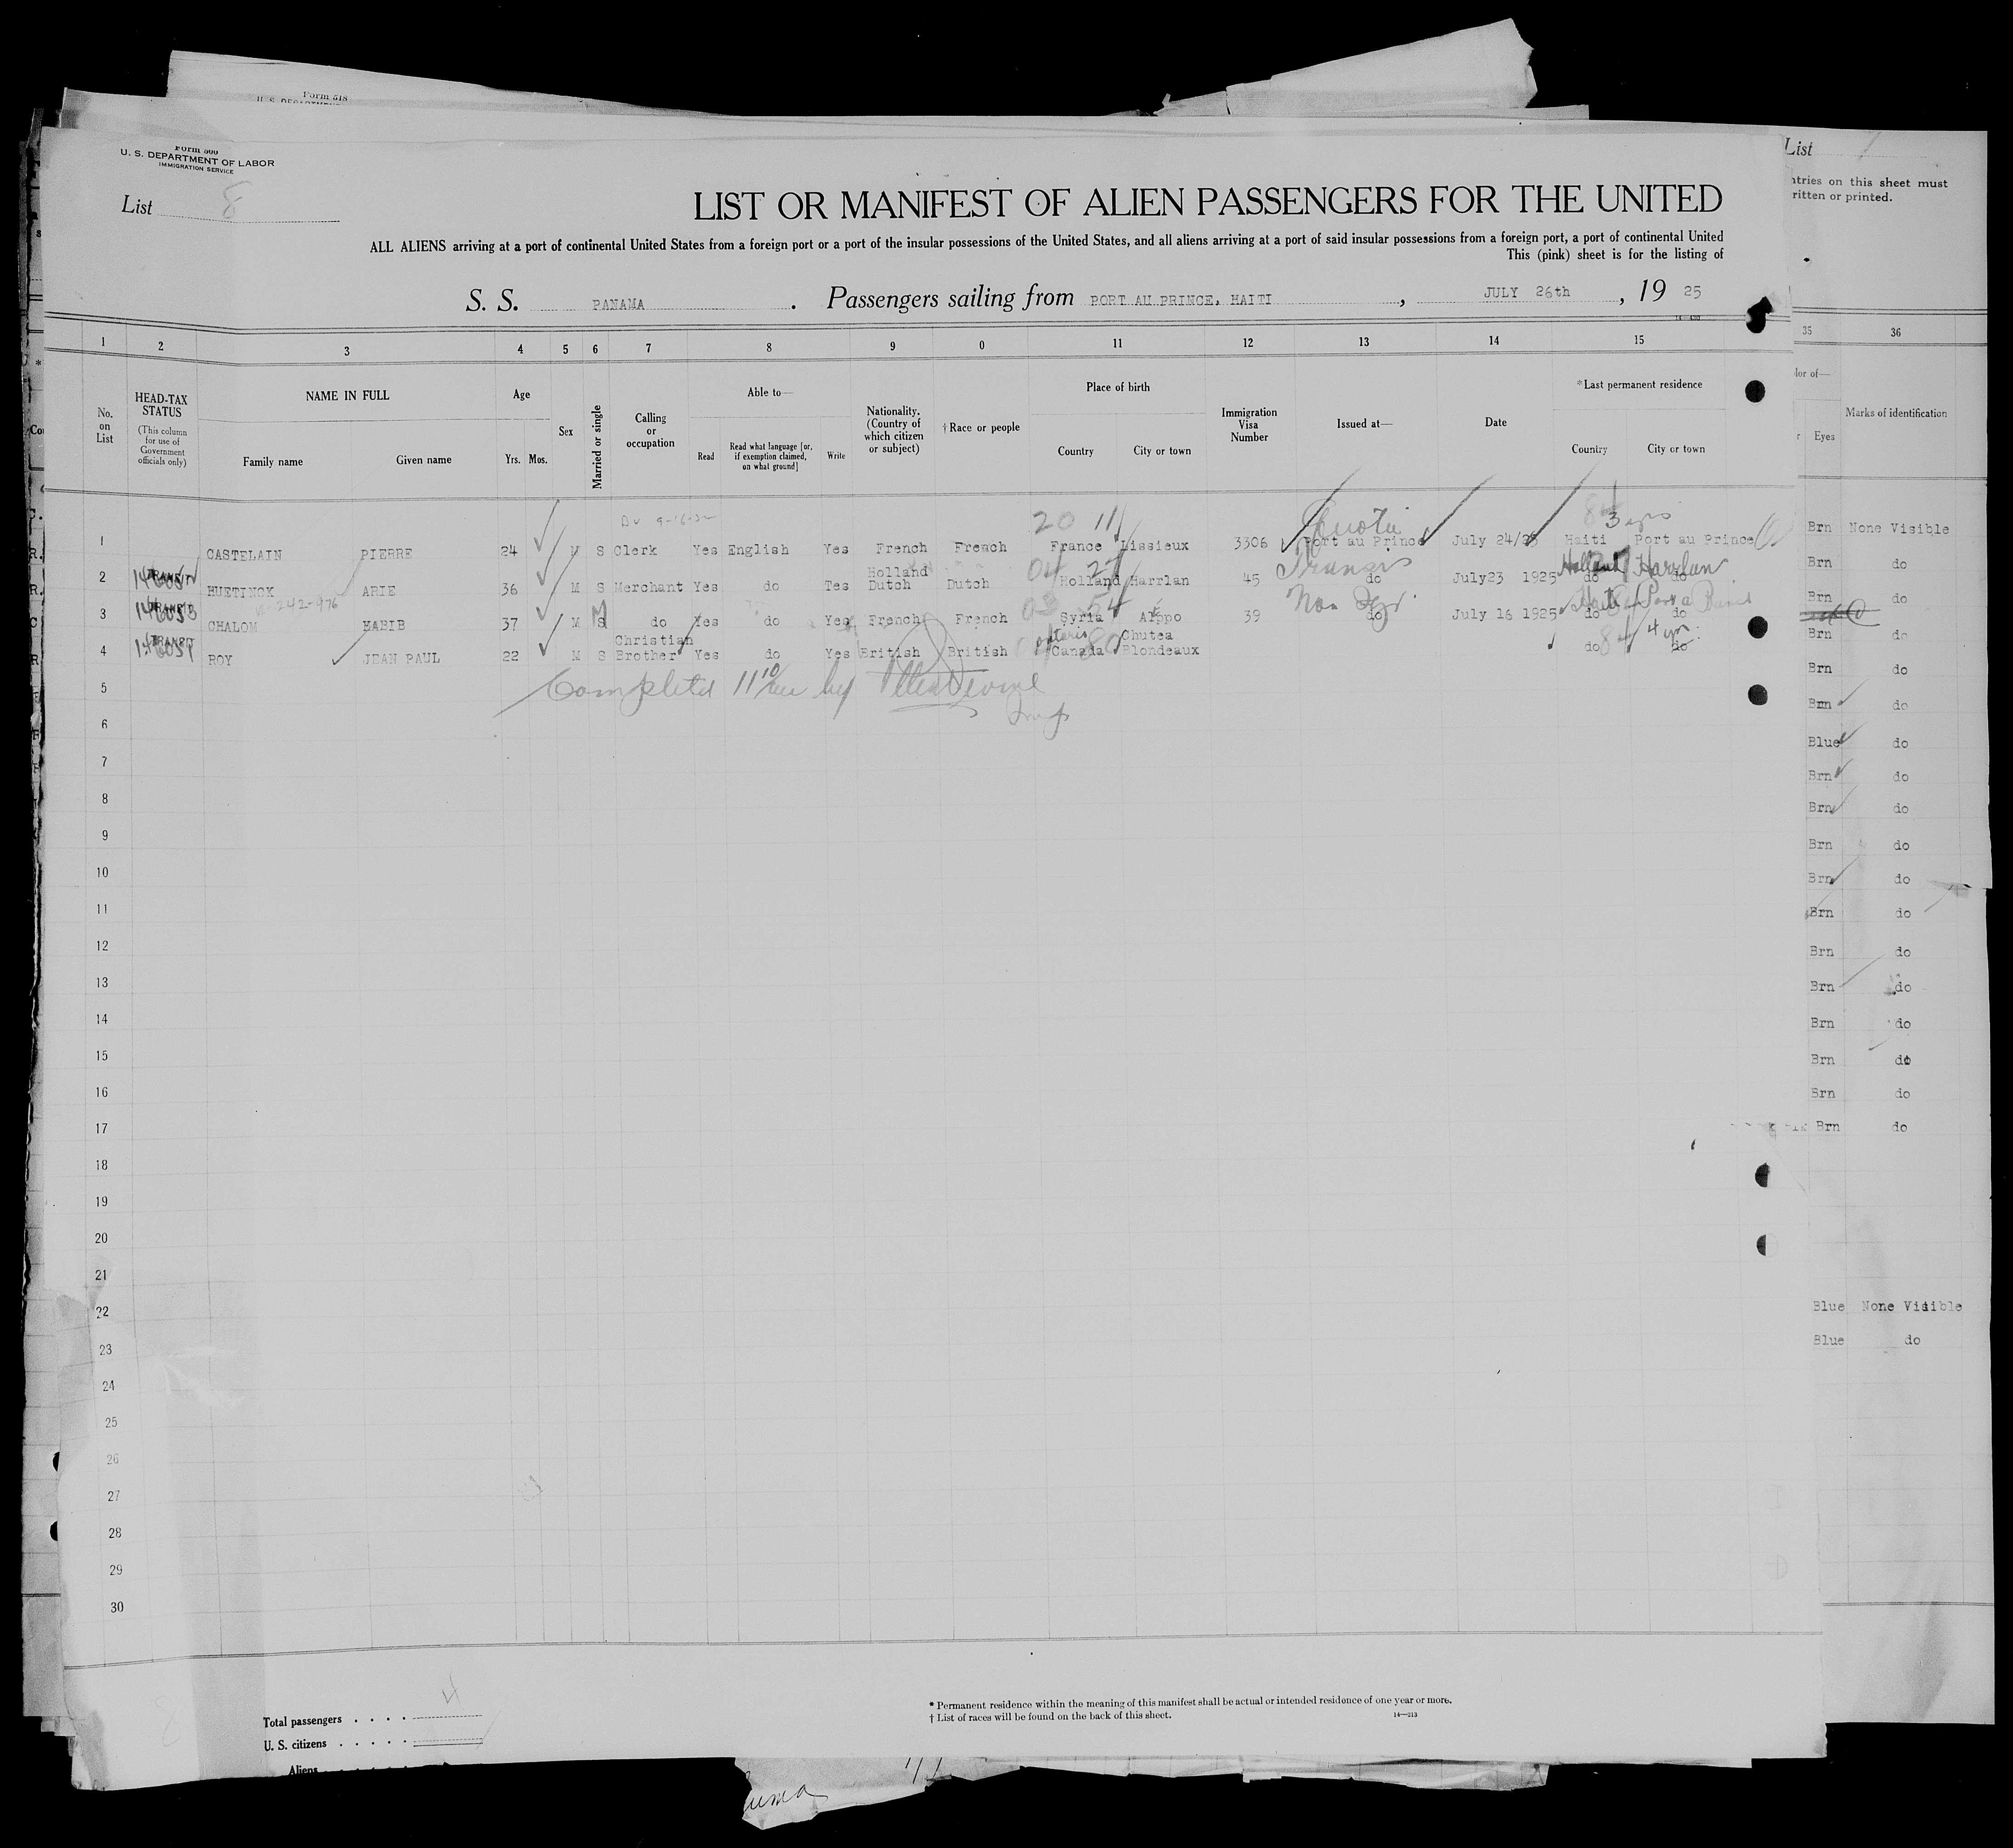 Form 518
Form 500
U. S. DEPARTMENT OF LABOR
IMMIGRATION SERVICE
List 8
LIST OR MANIFEST OF ALIEN PASSENGERS FOR THE UNITED
ALL ALIENS arriving at a port of continental United States from a foreign port or a port of the insular possessions of the United States, and all aliens arriving at a port of said insular possessions from a foreign port, a port of continental United
This (pink) sheet is for the listing of
S. S. PANAMA. Passengers sailing from PORT AU PRINCE, HAITI, JULY 26th, 19 25
1 2 3 4 5 6 7 8 9 0 11 12 13 14 15
No. on List
HEAD-TAX STATUS
(This column for use of Government officials only)
NAME IN FULL
Family name Given name
Age
Yrs. Mos.
Sex
Married or single
Calling or occupation
Able to—
Read
Read what language [or, if exemption claimed, on what ground]
Write
Nationality. (Country of which citizen or subject)
† Race or people
Place of birth
Country City or town
Immigration Visa Number
Issued at—
Date
*Last permanent residence
Country City or town
20 11 3 yrs
1 CASTELAIN PIERRE 24 M S Clerk Yes English Yes French French France Lissieux 3306 Port au Prince July 24/25 Haiti Port au Prince
Holland 04 27 Transit Holland Harrlan
2 TRANSIT HUETINCK ARIE 36 M S Merchant Yes do Tes Dutch Dutch Holland Harrlan 45 do July23 1925 do do
Non Haiti
3 TRANSIT CHALOM HABIB 37 M S M do Yes do Yes French French Syria Aleppo 39 do July 16 1925 do do
Christian Ontario Chutea 4 yrs
4 TRANSIT ROY JEAN PAUL 22 M S Brother Yes do Yes British British Canada Blondeaux do do
Completed 11 10 by
5
6
7
8
9
10
11
12
13
14
15
16
17
18
19
20
21
22
23
24
25
26
27
28
29
30
Total passengers . . . . 4
U. S. citizens . . . . .
Aliens
* Permanent residence within the meaning of this manifest shall be actual or intended residence of one year or more.
† List of races will be found on the back of this sheet.
14—213
List
ntries on this sheet must
ritten or printed.
35 36
lor of—
Eyes
Marks of identification
Brn None Visible
Brn do
Brn do
Brn do
Brn do
Brn do
Blue do
Brn do
Brn do
Brn do
Brn do
Brn do
Brn do
Brn do
Brn do
Brn do
Brn do
Brn do
Blue None Visible
Blue do